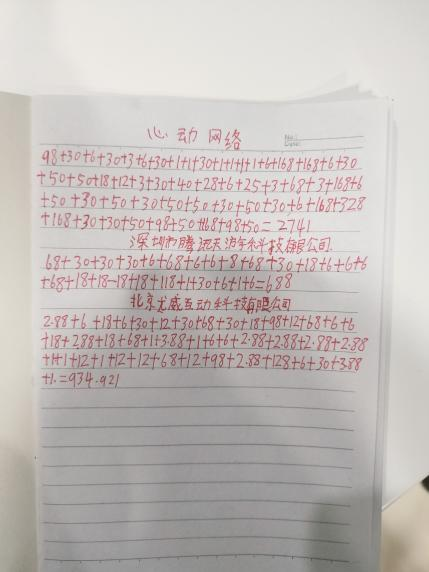 心动网络
No.:
Date:
98+30+6+30+3+6+30+1+1+30+1+1+1+1+6+168+168+6+30
+50+50+18+12+3+30+40+28+6+25+3+68+3+168+6
+50+30+50+30+50+50+30+50+30+6+168+328
+168+30+30+50+98+50+168+98+50=2741
深圳市腾讯天游科技有限公司
68+30+30+30+6+68+6+6+8+68+30+18+6+6+6
+68+18+18-18+18+118+1+30+6+1+6=688
北京尤威互动科技有限公司
2.88+6+18+6+30+12+30+68+30+18+98+12+68+6+6
+18+2.88+18+68+1+3.88+1+6+6+2.88+2.88+2.88+2.88
+1+1+12+1+12+12+68+12+98+2.88+128+6+30+3.88
+1.=934.921